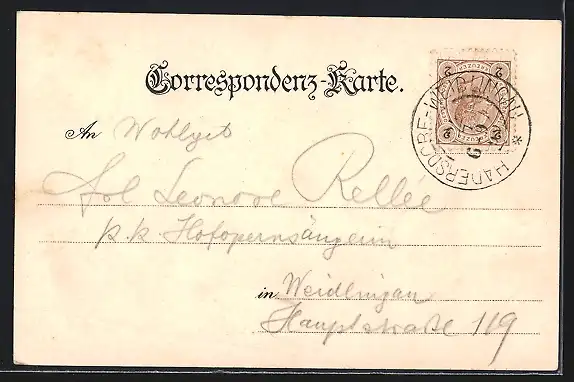 Correspondenz-Karte.
An Wohlgeb
Frl Leonore Rellée
k.k Hofopernsängerin
in Weidlingau
Hauptstraße 119
HADERSDORF-WEIDLINGAU
2 KREUZER 2
2 2